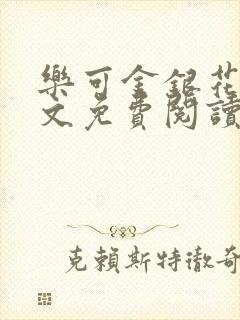 樂可金銀花
文免費閱讀
克賴斯特徹奇